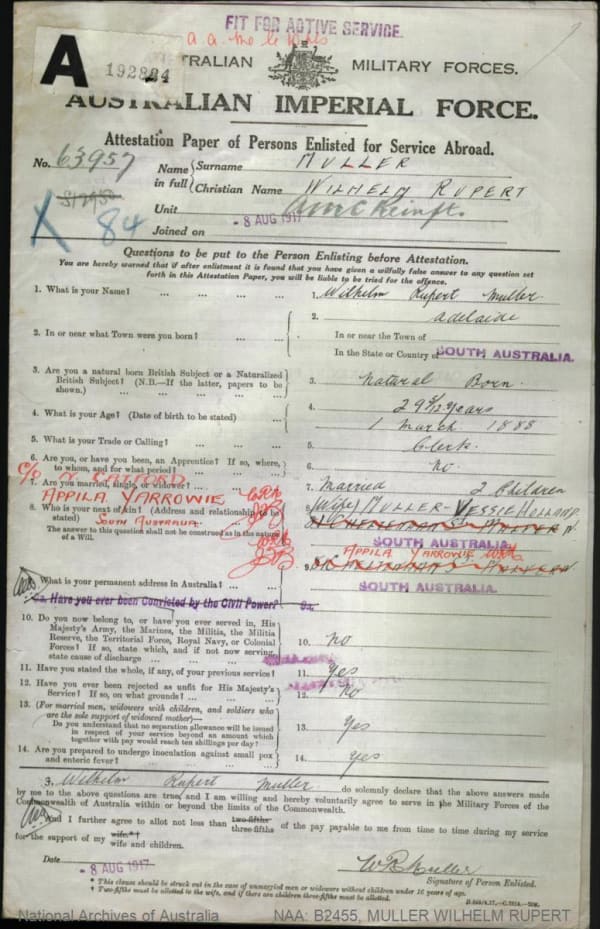 FIT FOR ACTIVE SERVICE.
A
192884
TRALIAN MILITARY FORCES.
AUSTRALIAN IMPERIAL FORCE.
Attestation Paper of Persons Enlisted for Service Abroad.
No. 63957
Name in full { Surname MULLER
Christian Name WILHELM RUPERT
Unit AMC Reinfts.
X 84
Joined on - 8 AUG 1917
Questions to be put to the Person Enlisting before Attestation.
You are hereby warned that if after enlistment it is found that you have given a wilfully false answer to any question set
forth in this Attestation Paper, you will be liable to be tried for the offence.
1. What is your Name? ... ... ... ... 1. Wilhelm Rupert Muller
2. In or near what Town were you born? ... ... 2. Adelaide
In or near the Town of
In the State or Country of SOUTH AUSTRALIA.
3. Are you a natural born British Subject or a Naturalized
British Subject? (N.B.—If the latter, papers to be
shown.) ... ... ... ... 3. Natural Born.
4. What is your Age? (Date of birth to be stated) ... 4. 29 5/12 years
1 March 1888
5. What is your Trade or Calling? ... ... ... 5. Clerk.
6. Are you, or have you been, an Apprentice? If so, where,
to whom, and for what period? ... ... 6. no.
7. Are you married, single, or widower? ... ... 7. Married 2 Children
c/o
APPILA YARROWIE
SOUTH AUSTRALIA
8. Who is your next of kin? (Address and relationship to be
stated) 8. (Wife) MULLER
The answer to this question shall not be construed as in the nature
of a Will.
SOUTH AUSTRALIA
9. What is your permanent address in Australia? ... ... 9.
APPILA YARROWIE
SOUTH AUSTRALIA.
9a. Have you ever been Convicted by the Civil Power? 9a.
10. Do you now belong to, or have you ever served in, His
Majesty's Army, the Marines, the Militia, the Militia
Reserve, the Territorial Force, Royal Navy, or Colonial
Forces? If so, state which, and if not now serving,
state cause of discharge ... ... ... 10. no
11. Have you stated the whole, if any, of your previous service? 11. Yes
12. Have you ever been rejected as unfit for His Majesty's
Service? If so, on what grounds? ... ... 12. No
13. (For married men, widowers with children, and soldiers who
are the sole support of widowed mother)—
Do you understand that no separation allowance will be issued
in respect of your service beyond an amount which
together with pay would reach ten shillings per day? 13. Yes
14. Are you prepared to undergo inoculation against small pox
and enteric fever? ... ... ... ... 14. Yes
3. Wilhelm Rupert Muller do solemnly declare that the above answers made
by me to the above questions are true, and I am willing and hereby voluntarily agree to serve in the Military Forces of the
Commonwealth of Australia within or beyond the limits of the Commonwealth.
And I further agree to allot not less than two-fifths three-fifths of the pay payable to me from time to time during my service
for the support of my wife*† wife and children.
Date - 8 AUG 1917
W R Muller
Signature of Person Enlisted.
* This clause should be struck out in the case of unmarried men or widowers without children under 16 years of age.
† Two-fifths must be allotted to the wife, and if there are children three-fifths must be allotted.
National Archives of Australia NAA: B2455, MULLER WILHELM RUPERT